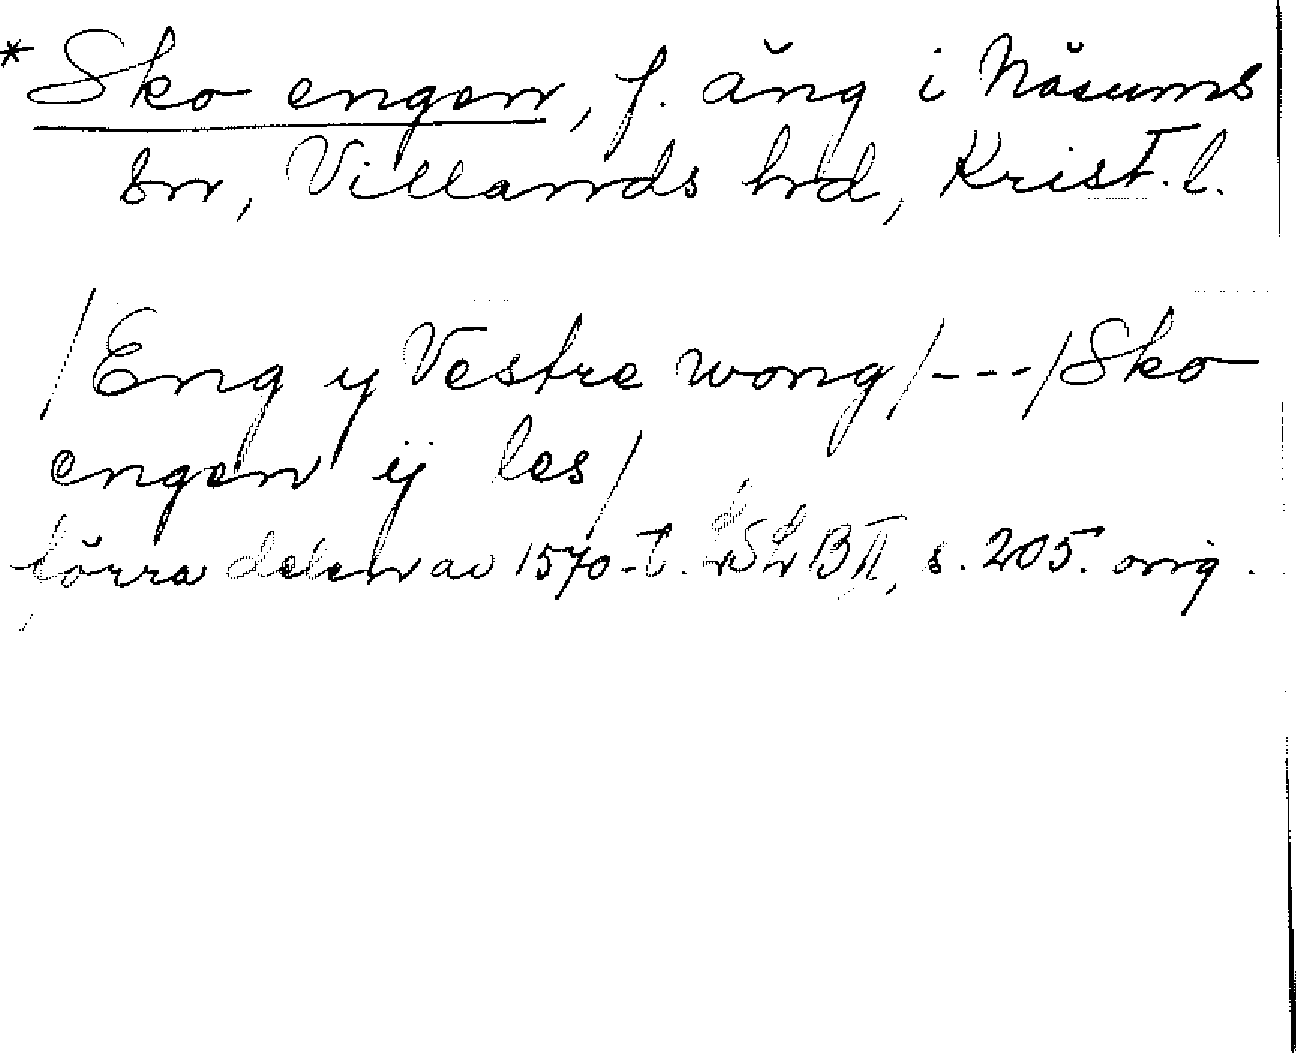 * Sko engen, f. äng i Näsums
sn, Villands hd, Krist. l.
/Eng y Vestre wong/---/Sko
engen ij les/
förra delen av 1570-t. LSLB II, s. 205. orig.